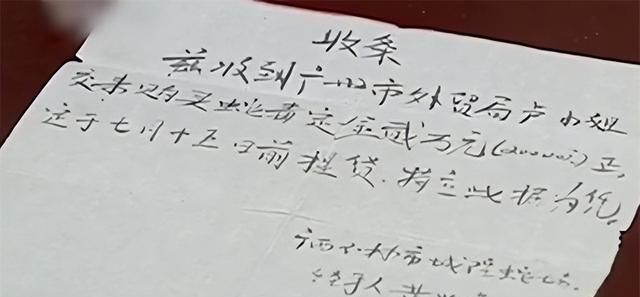 收条
兹收到广州市外贸局卢小姐
交来购买蛇苗定金贰万元(20000元)正,
定于七月十五日前提货.特立此据为凭.
广西 林市城隍蛇场.
经手人 黄